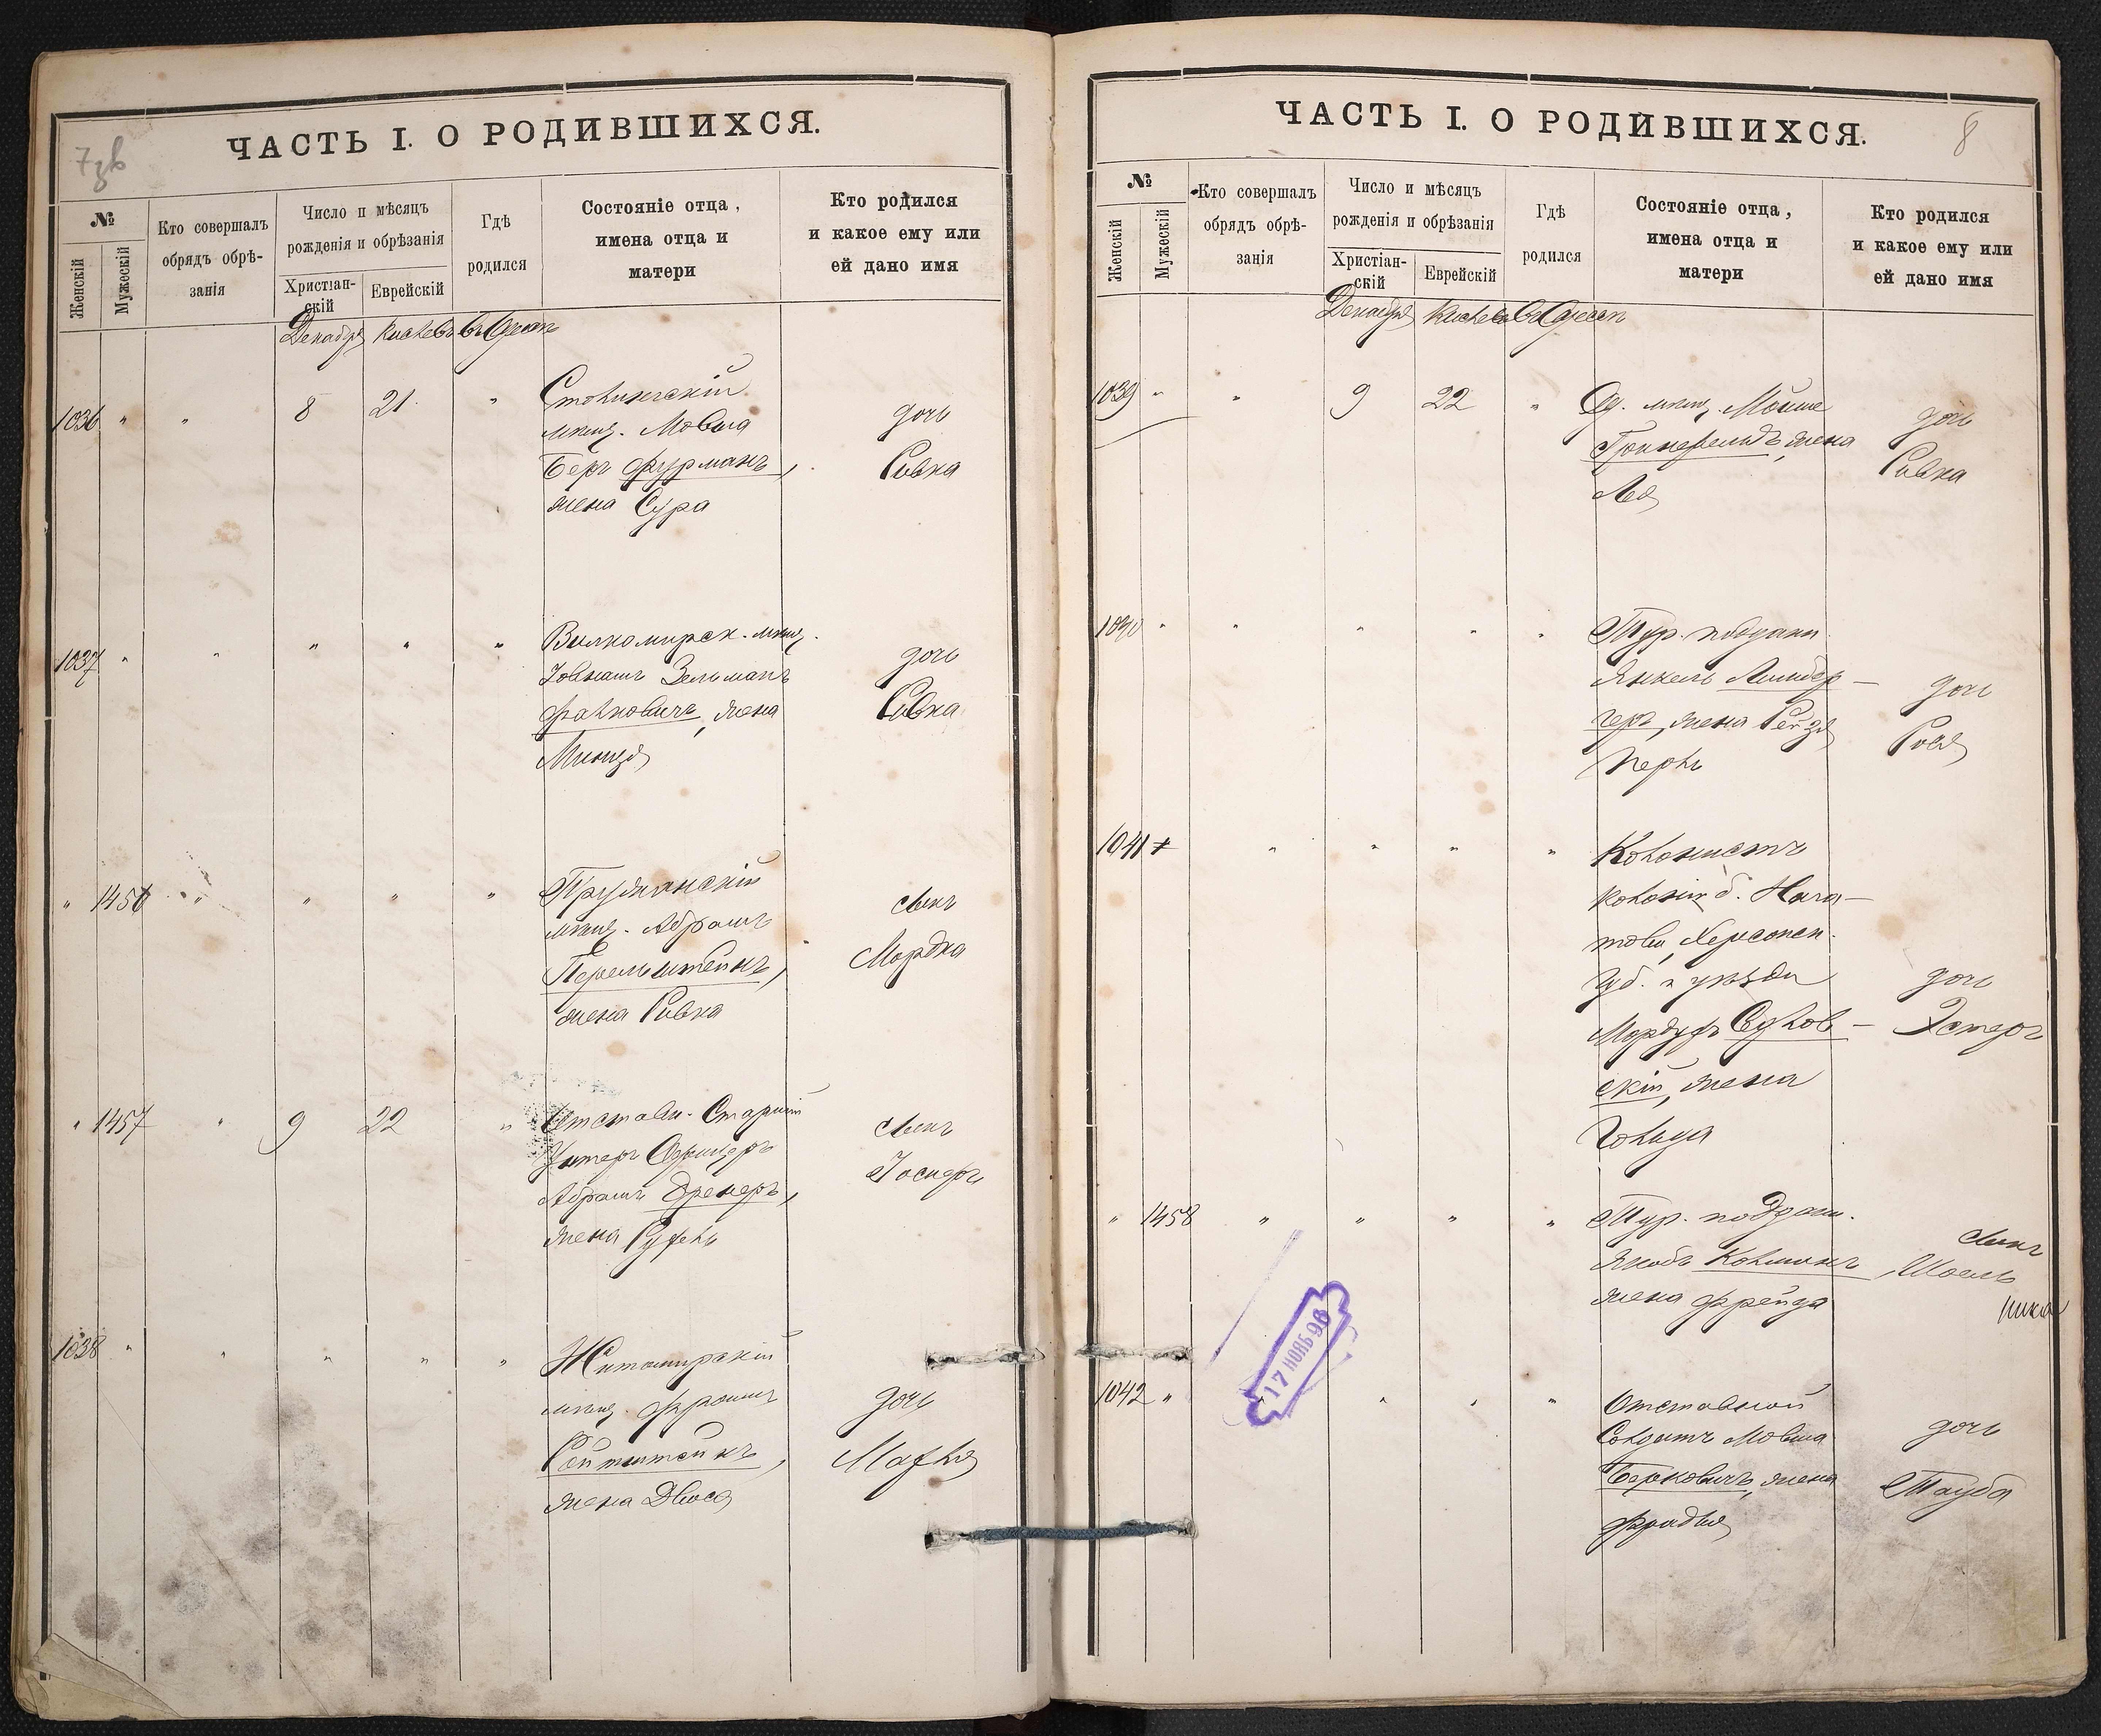 7зв
ЧАСТЬ I. О РОДИВШИХСЯ.
№
Женскій
Мужескій
Кто совершалъ
обрядъ обрѣ-
занія
Число и мѣсяцъ
рожденія и обрѣзанія
Христіан-
скій
Еврейскій
Гдѣ
родился
Состояніе отца,
имена отца и
матери
Кто родился
и какое ему или
ей дано имя
Декабря Кислевъ въ Одессѣ
1036 " " 8 21 "
мѣщ. Мовша
Беръ Фурманъ,
жена Сура
дочь
Ривка
1037 " " " " "
Вилкомирск. мѣщ.
Зельманъ
жена
дочь
Ривка
" 1456 " " " "
мѣщ. Абрамъ
Перельштейнъ,
жена Ривка
сынъ
Мордка
" 1457 " 9 22 "
Отставн. Старшій
Унтеръ Офицеръ
Абрамъ Дрекеръ,
жена Рухель
сынъ
Іосифъ
1038 " " " " "
Житомирскій
мѣщ. Фроимъ
Ройтштейнъ,
жена Двося
дочь
Махля
8
ЧАСТЬ I. О РОДИВШИХСЯ.
№
Женскій
Мужескій
Кто совершалъ
обрядъ обрѣ-
занія
Число и мѣсяцъ
рожденія и обрѣзанія
Христіан-
скій
Еврейскій
Гдѣ
родился
Состояніе отца,
имена отца и
матери
Кто родился
и какое ему или
ей дано имя
Декабря Кислевъ въ Одессѣ
1039 " " 9 22 "
Од. мѣщ. Мойше
Гринфельдъ, жена
Лея
дочь
Ривка
" " " " "
Тур. поддан.
Янкель
жена Рейзя
Перль
дочь
1041 " " " "
Колонистъ
колоніи б. Нага-
товъ, Херсонск.
губ. и уѣзда
Мордухъ Сухов-
скій, жена
Голда
дочь
Эстеръ
" 1458 " " " "
Тур. поддан.
Якобъ Колманъ,
жена Фрейда
сынъ
Шоель
17 НОЯБ 96
1042 " " " "
Отставной
Солдатъ Мовша
Берковичъ, жена
Фрадля
дочь
Тауба